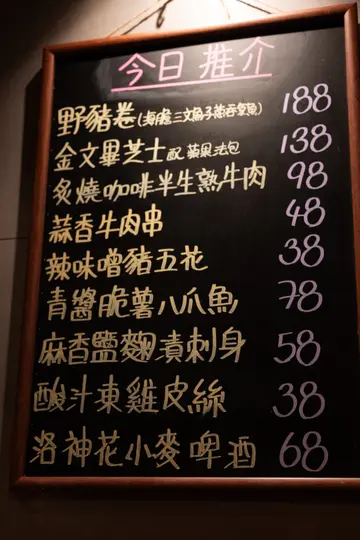 今日推介
野豬卷(海膽三文魚子燕吞拿魚) 188
金文畢芝士配蘋果法包 138
炙燒咖啡半生熟牛肉 98
蒜香牛肉串 48
辣味噌豬五花 38
青醬脆薯八爪魚 78
麻香鹽麴漬刺身 58
酸汁東雞皮絲 38
洛神花小麥啤酒 68